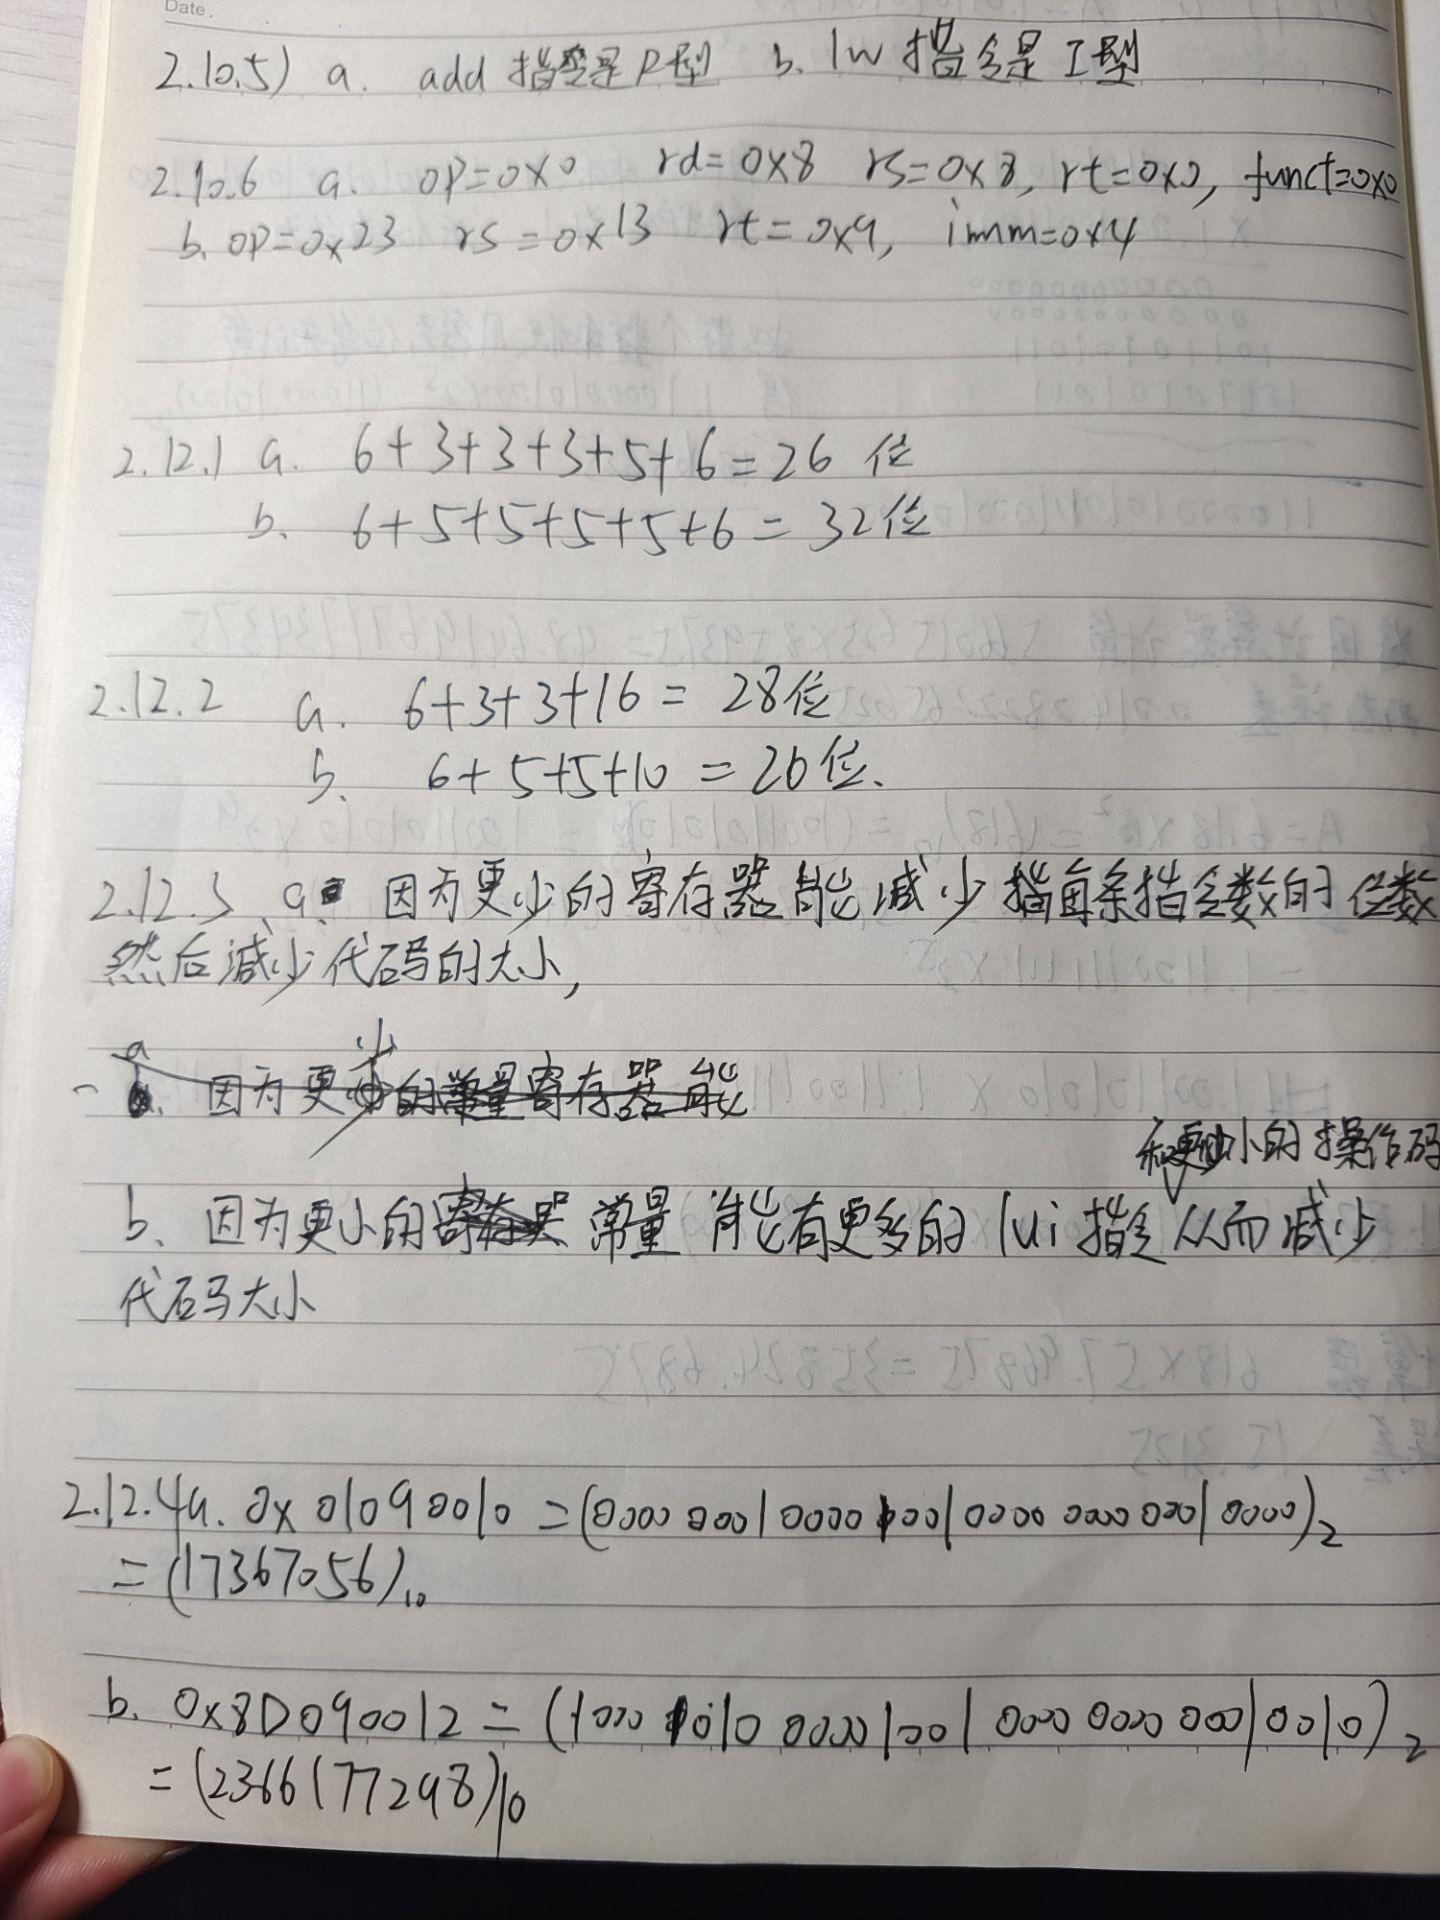 Date.
2.10.5) a. add 指令是R型 b. lw 指令是 I型
2.10.6 a. op=0x0 rd=0x8 rs=0x8, rt=0x0, funct=0x0
b. op=0x23 rs=0x13 rt=0x9, imm=0x4
2.12.1 a. 6+3+3+3+5+6=26 位
b. 6+5+5+5+5+6=32位
2.12.2 a. 6+3+3+16=28位
b. 6+5+5+10=26位.
2.12.3 a. 因为更少的寄存器能减少指每条指令数的位数
然后减少代码的大小,
a. 因为更少的常量寄存器能
和更小的操作码
b. 因为更小的寄存器 常量 能有更多的 lui 指令 从而减少
代码大小
2.12.4 a. 0x01090010=(0000 0001 0000 1001 0000 0000 0001 0000)2
=(17367056)10
b. 0x8D090012=(1000 1010 0000 1001 0000 0000 0001 0010)2
=(2366177298)10